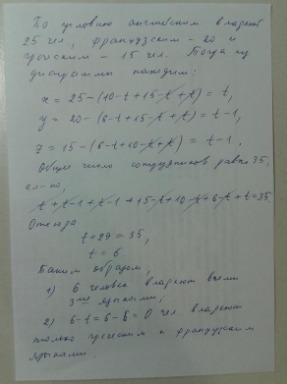 По условию английским владеют
25 чел, французским - 20 и
греческим - 15 чел. Тогда из
диаграммы находим:
x = 25-(10-t+15-t+t) = t,
y = 20-(6-t+15-t+t) = t-1,
z = 15-(6-t+10-t+t) = t-1,
Общее число сотрудников равно 35,
t+t-1+t-1+15-t+10-t+6-t+t=35
Отсюда
t+29=35,
t = 6.
Таким образом,
1) 6 человек владеют всеми
3мя языками;
2) 6-t=6-6=0 чел. владеют
только греческим и французским
языками.